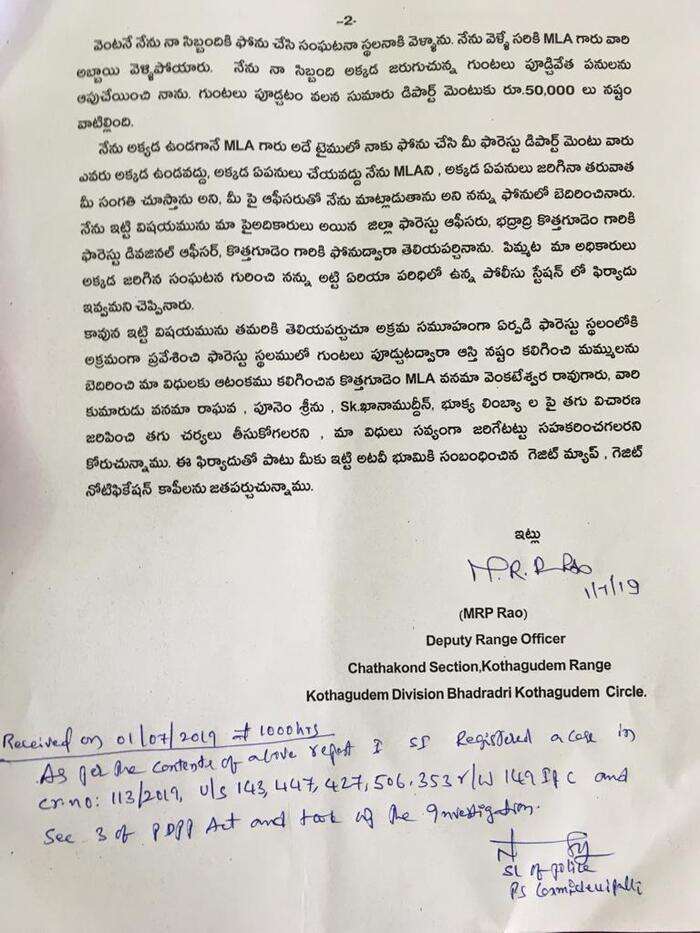 -2-
వెంటనే నేను నా సిబ్బందికి ఫోను చేసి సంఘటనా స్థలనాకి వెళ్ళాను. నేను వెళ్ళే సరికి MLA గారు వారి
అబ్బాయి వెళ్ళిపోయారు. నేను నా సిబ్బంది అక్కడ జరుగుచున్న గుంటలు పూడ్చివేత పనులను
ఆపుచేయించి నాను. గుంటలు పూడ్చటం వలన సుమారు డిపార్ట్ మెంటుకు రూ.50,000 లు నష్టం
వాటిల్లింది.
నేను అక్యడ ఉండగానే MLA గారు అదే టైములో నాకు ఫోను చేసి మీ ఫారెస్టు డిపార్ట్ మెంటు వారు
ఎవరు అక్కడ ఉండవద్దు, అక్కడ ఏపనులు చేయవద్దు నేను MLAని , అక్కడ ఏపనులు జరిగినా తరువాత
మీ సంగతి చూస్తాను అని, మీ పై ఆఫీసరుతో నేను మాట్లాడుతాను అని నన్ను ఫోనులో బెదిరించినారు.
నేను ఇట్టి విషయమును మా పైఅదికారులు అయిన జిల్లా ఫారెస్టు ఆఫీసరు, భద్రాద్రి కొత్తగూడెం గారికి
ఫారెస్టు డివజినల్ ఆఫీసర్, కొత్తగూడెం గారికి ఫోనుద్వారా తెలియపర్చినాను. పిమ్మట మా అధికారులు
అక్కడ జరిగిన సంఘటన గురించి నన్ను అట్టి ఏరియా పరిధిలో ఉన్న పోలీసు స్టేషన్ లో ఫిర్యాదు
ఇవ్వమని చెప్పినారు.
కావున ఇట్టి విషయమును తమరికి తెలియపర్చుచూ అక్రమ సమూహంగా ఏర్పడి ఫారెస్టు స్థలంలోకి
అక్రమంగా ప్రవేశించి ఫారెస్టు స్థలములో గుంటలు పూడ్చుటద్వారా ఆస్తి నష్టం కలిగించి మమ్ములను
బెదిరించి మా విధులకు ఆటంకము కలిగించిన కొత్తగూడెం MLA వనమా వెంకటేశ్వర రావుగారు, వారి
కుమారుడు వనమా రాఘవ , పూనెం శ్రీను , Sk.ఖానాముద్దీన్, భూక్య లింబ్యా ల పై తగు విచారణ
జరిపించి తగు చర్యలు తీసుకోగలరని , మా విధులు సవ్యంగా జరిగేటట్టు సహకరించగలరని
కోరుచున్నాము. ఈ ఫిర్యాదుతో పాటు మీకు ఇట్టి అటవీ భూమికి సంబంధించిన గెజిట్ మ్యాప్ , గెజిట్
నోటిఫికేషన్ కాపీలను జతపర్చుచున్నాము.
ఇట్లు
M.R.P Rao
1/7/19
(MRP Rao)
Deputy Range Officer
Chathakond Section,Kothagudem Range
Kothagudem Division Bhadradri Kothagudem Circle.
Received on 01/07/2019 at 1000hrs
As per the contents of above report I SI Registered a case in
cr.no: 113/2019, u/s 143, 447, 427, 506, 353 r/w 149 IPC and
Sec 3 of PDPP Act and took up the Investigation.
SI of police
PS